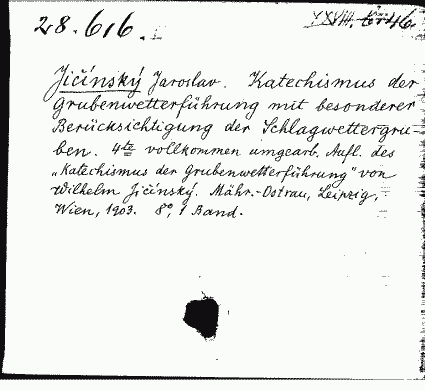 28.616.
XXVIII. 46
Jičínský Jaroslav. Katechismus der
Grubenwetterführung mit besonderer
Berücksichtigung der Schlagwettergru-
ben. 4te vollkommen umgearb. Aufl. des
„Katechismus der Grubenwetterführung" von
Wilhelm Jičínský. Mähr.-Ostrau, Leipzig,
Wien, 1903. 8°, 1 Band.